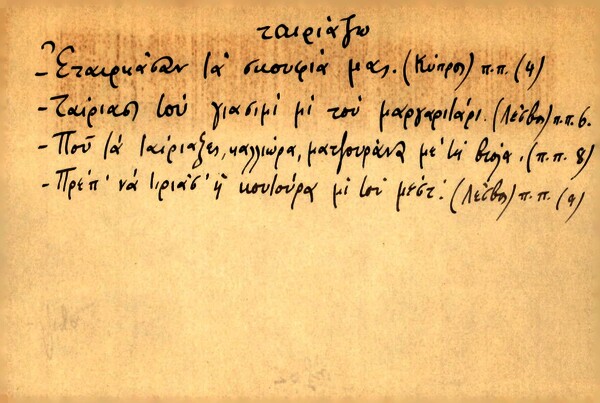 ταιριάζω
- Ἐταιρκάσαν τά σκουφιά μας. (Κύπρος) π.π. (4)
- Ταίριασι τού γιασιμί μί τού μαργαριτάρι. (Λέσβος) π.π. 6.
- Ποῦ τά ταίριαξες, καλλιώρα, ματζουράνα με τή, (π.π. 8)
- Πρέπ' νά ταιριάσ' ἡ κουτούρα μί τού μέστ'. (Λέσβος) π.π. (9)